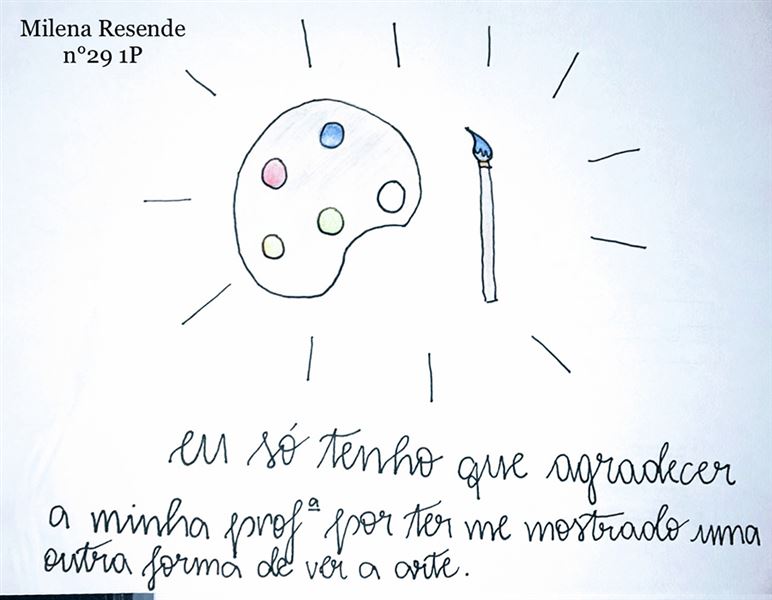 Milena Resende
nº29 1P
eu só tenho que agradecer
a minha profª por ter me mostrado uma
outra forma de ver a arte.